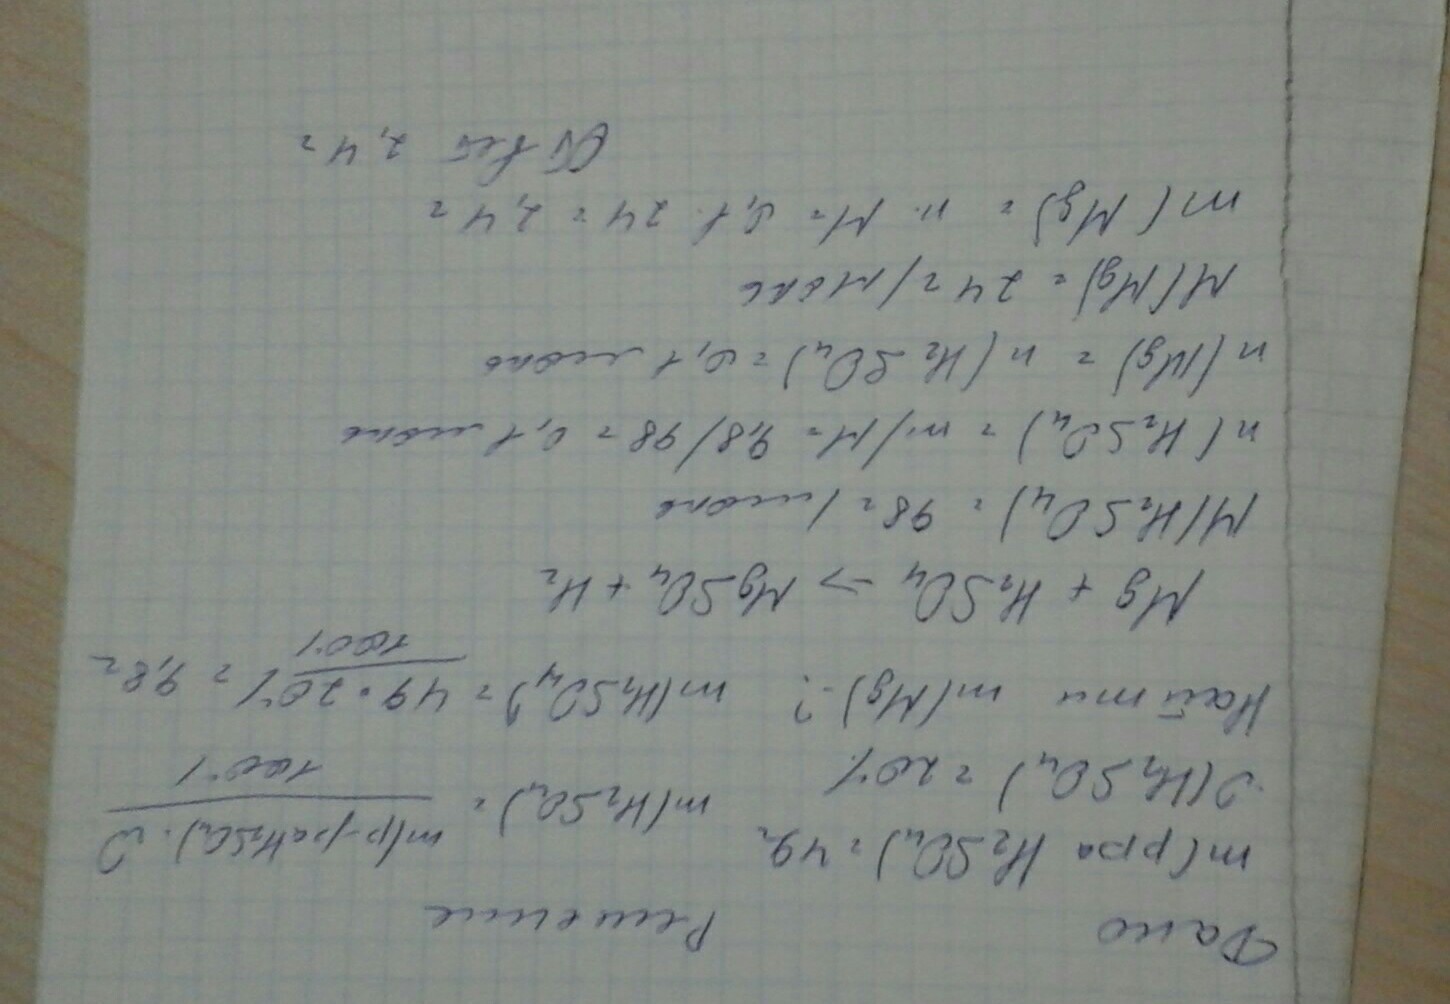 Дано Решение
m(рра H₂SO₄) = 49г m(H₂SO₄) = m(р-раH₂SO₄)·ω / 100%
ω(H₂SO₄) = 20%
Найти m(Mg)-? m(H₂SO₄) = 49·20% / 100% = 9,8г
Mg + H₂SO₄ → MgSO₄ + H₂
M(H₂SO₄) = 98г/моль
n(H₂SO₄) = m/M = 9,8/98 = 0,1 моль
n(Mg) = n(H₂SO₄) = 0,1 моль
M(Mg) = 24г/моль
m(Mg) = n·M = 0,1·24 = 2,4г
Ответ 2,4г